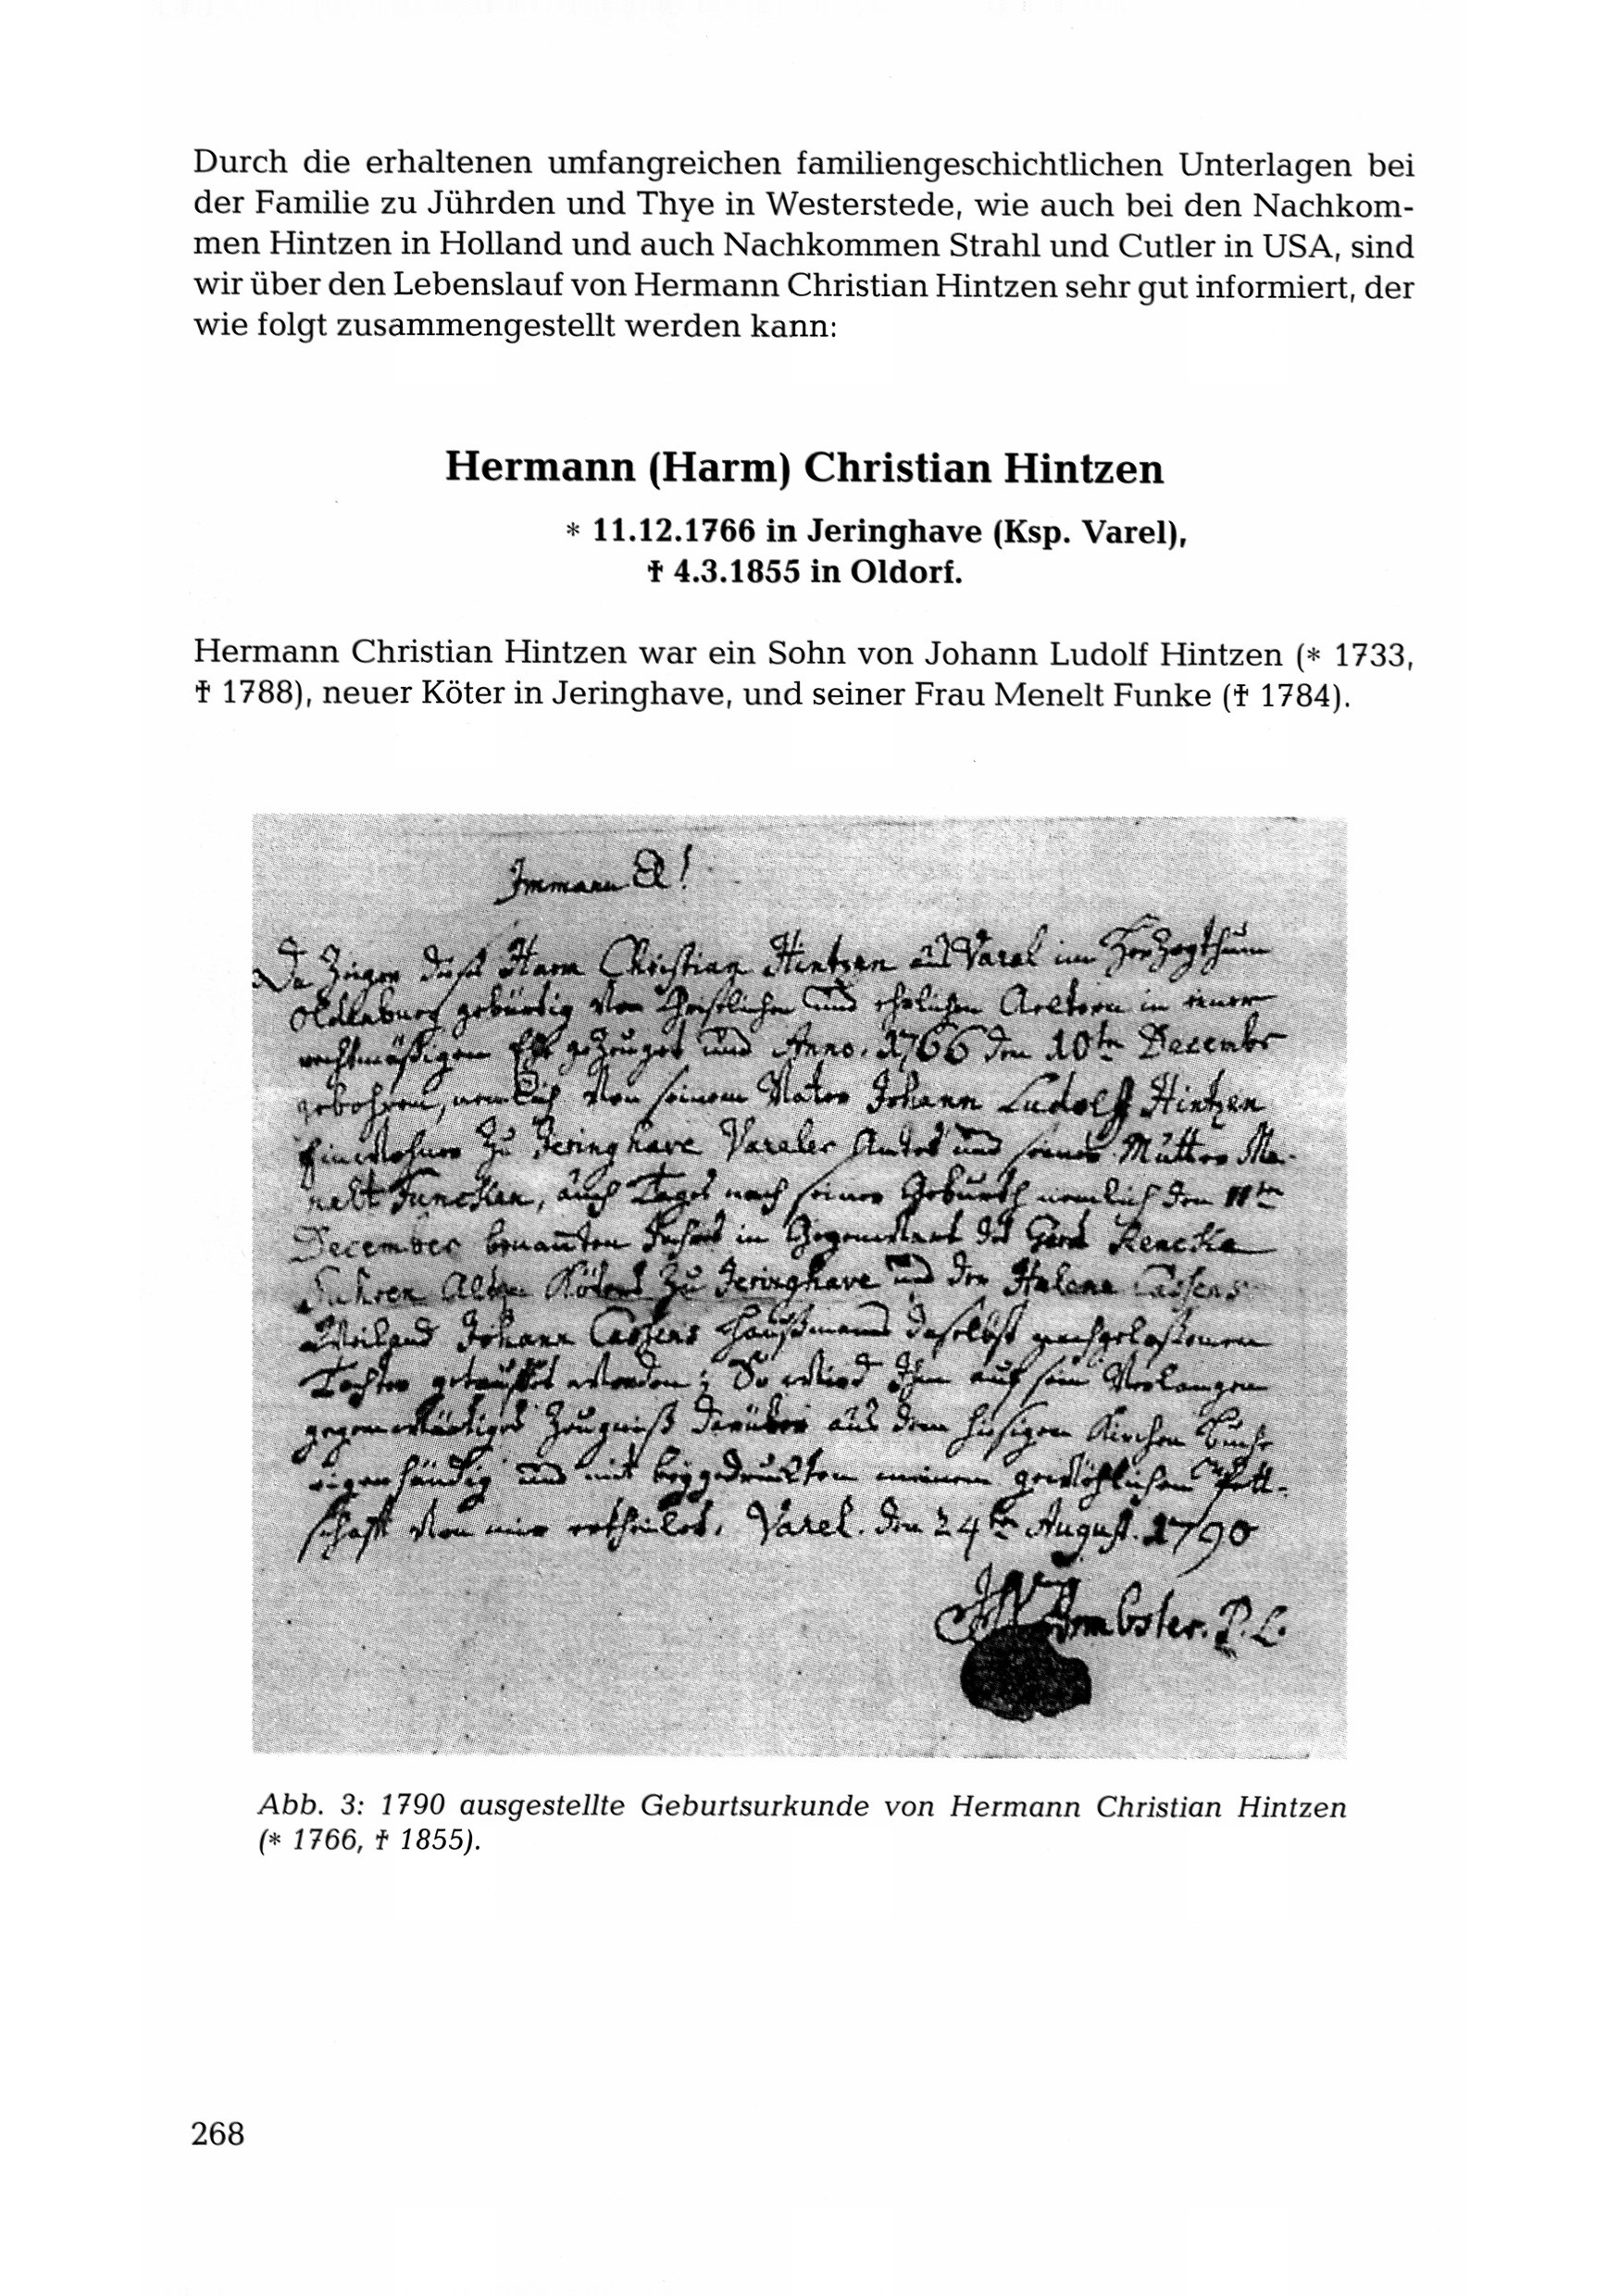 Durch die erhaltenen umfangreichen familiengeschichtlichen Unterlagen bei
der Familie zu Jührden und Thye in Westerstede, wie auch bei den Nachkom-
men Hintzen in Holland und auch Nachkommen Strahl und Cutler in USA, sind
wir über den Lebenslauf von Hermann Christian Hintzen sehr gut informiert, der
wie folgt zusammengestellt werden kann:
Hermann (Harm) Christian Hintzen
* 11.12.1766 in Jeringhave (Ksp. Varel),
✝ 4.3.1855 in Oldorf.
Hermann Christian Hintzen war ein Sohn von Johann Ludolf Hintzen (* 1733,
✝ 1788), neuer Köter in Jeringhave, und seiner Frau Menelt Funke (✝ 1784).
Harm Christian Hintzen aus Varel im Herzogthum
Oldenburg gebürtig von Christlichen und ehrlichen Aeltern in einer
rechtmäßigen Ehe gezeuget und Anno. 1766 den 10ten Decembr
gebohren, nemlich von seinem Vater Johann Ludolff Hintzen
Einwohner zu Jeringhave Vareler Amtes und seiner Mutter Me-
nelt Funcken, auch Tages nach seiner Geburth nemlich den 11ten
December benanten Jahres in Gegenwart des Gerd Rencken
Suhren Alten Köters zu Jeringhave und der Helena Cassens
Weiland Johann Cassens Haußmanns daselbst nachgelaßenen
Tochter getauffet worden; So wird Ihm auf sein Verlangen
gegenwärtiges Zeugniß darüber aus dem hiesigen Kirchen Buche
eigenhändig und mit beygedruckten meinem gewöhlichen Pett-
schaft von mir ertheilet. Varel. den 24ten August. 1790
Armbster. P. L.
Abb. 3: 1790 ausgestellte Geburtsurkunde von Hermann Christian Hintzen
(* 1766, ✝ 1855).
268